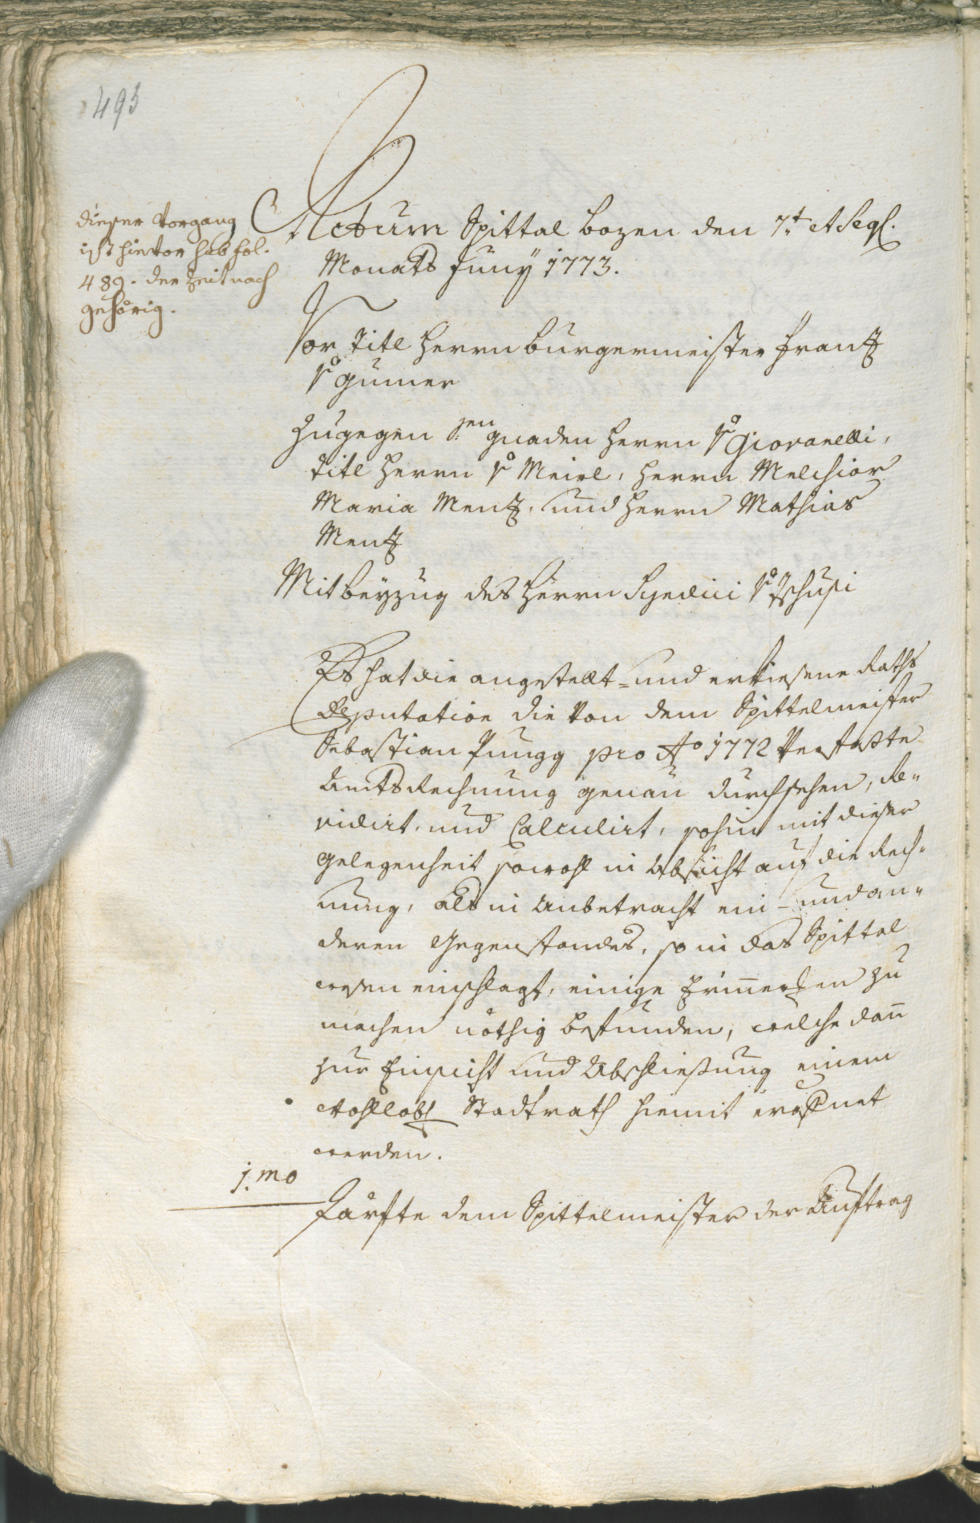 493
dieser Vorgang
ist hievor sub fol.
489. der Zeit nach
gehörig.
Actum Spittal Bozen den 7.t et Seq.
Monats Juny 1773.
Vor Titl Herrn Burgermeister Frantz
v Gumer
Zugegen Gnaden Herrn v Giovanelli,
Titl Herrn v Meirl, Herrn Melchior
Maria Mentz, und Herrn Mathias
Mentz
Mit beyzug des Herrn Syndici v Tschusi
Es hat die angestelt- und erkiesene Raths
Deputation die von dem Spittelmeister
Sebastian Pungg pro Ao 1772 verfaßte
Amts Rechnung genau durchsehen, re-
vidirt, und Calculirt, sohin mit dieser
Gelegenheit sowohl in Absicht auf die Rech-
nung, als in Anbetracht ein- und an-
deren Gegenstandes, so in das Spittal
wesen einschlagt, einige zu
machen nöthig befunden, welche dan̄
zur Einsicht und Abschließung einem
Wohllobl Stadtrath hiemit eröfnet
werden.
1.mo
Därfte dem Spittelmeister der Auftrag